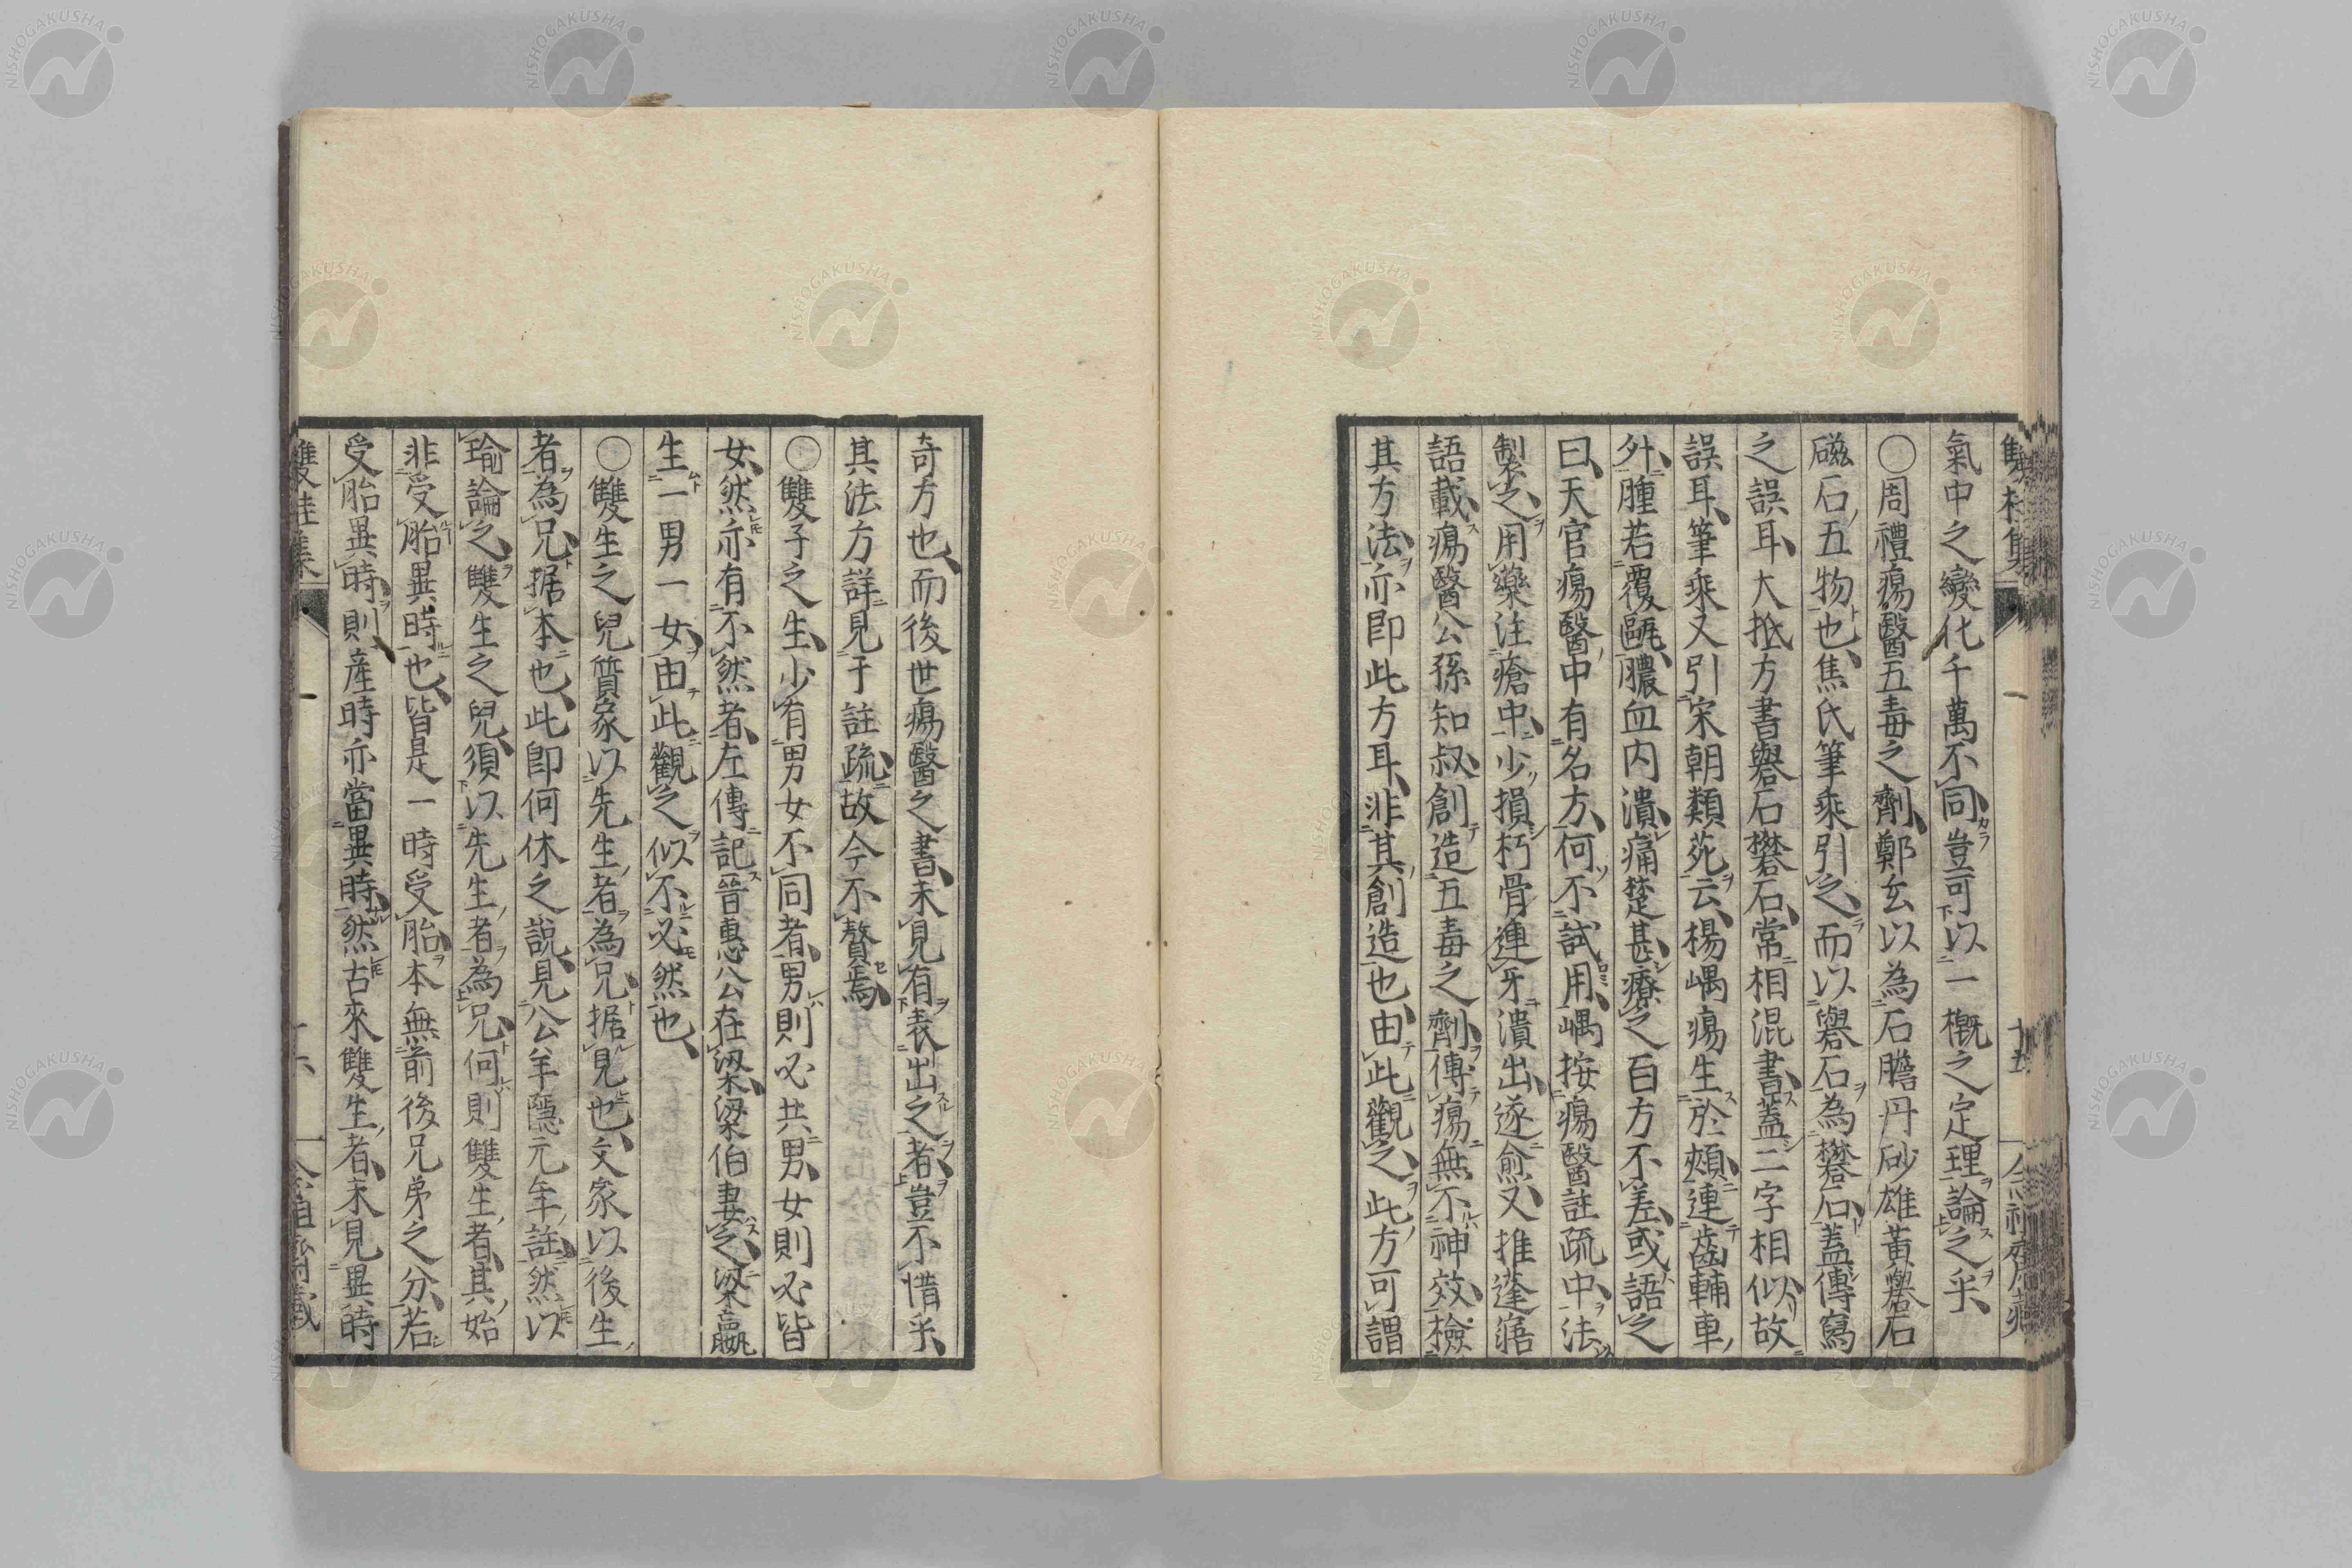 氣中之變化千萬不同豈可以一概之定理論之乎
〇周禮瘍醫五毒之劑鄭玄以為石膽丹砂雄黃礜石
磁石五物也焦氏筆乘引之而以礜石為礬石蓋傳寫
之誤耳大抵方書礜石礬石常相混書蓋二字相似故
誤耳筆乘又引宋朝類苑云楊嵎瘍生於頰連齒輔車
外腫若覆甌膿血内潰痛楚甚療之百方不差或語之
曰天官瘍醫中有名方何不試用嵎按瘍醫註疏中法
製之用藥注瘡中少損朽骨連牙潰出遂愈又推蓬寤
語載瘍醫公孫知叔創造五毒之劑傅瘍無不神效檢
其方法亦即此方耳非其創造也由此觀之此方可謂
奇方也而後世瘍醫之書未見有表出之者豈不惜乎
其法方詳見于註疏故今不贅焉
〇雙子之生少有男女不同者男則必共男女則必皆
女然亦有不然者左傳記晉惠公在梁梁伯妻之梁嬴
生一男一女由此觀之似不必然也
〇雙生之兒質家以先生者為兄据見也文家以後生
者為兄据本也此即何休之說見公羊隱元年註然以
瑜論之雙生之兒須以先生者為兄何則雙生者其始
非受胎異時也皆是一時受胎本無前後兄弟之分若
受胎異時則產時亦當異時然古來雙生者未見異時